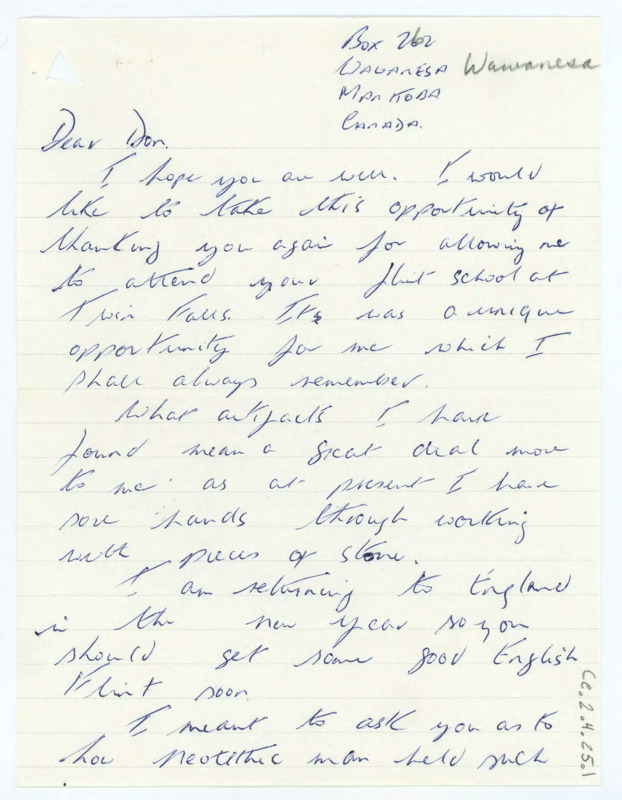 Box 262
WAWANESA Wawanesa
MANITOBA
CANADA.
Dear Don.
I hope you are well. I would
like to take this opportunity of
thanking you again for allowing me
to attend your flint school at
Twin Falls. It was a unique
opportunity for me which I
shall always remember.
What artifacts I have
found mean a great deal more
to me as at present I have
sore hands through working
with pieces of stone.
I am returning to England
in the new year so you
should get some good English
Flint soon.
I meant to ask you as to
how Neolithic man held such
Ce.2.4.25.1